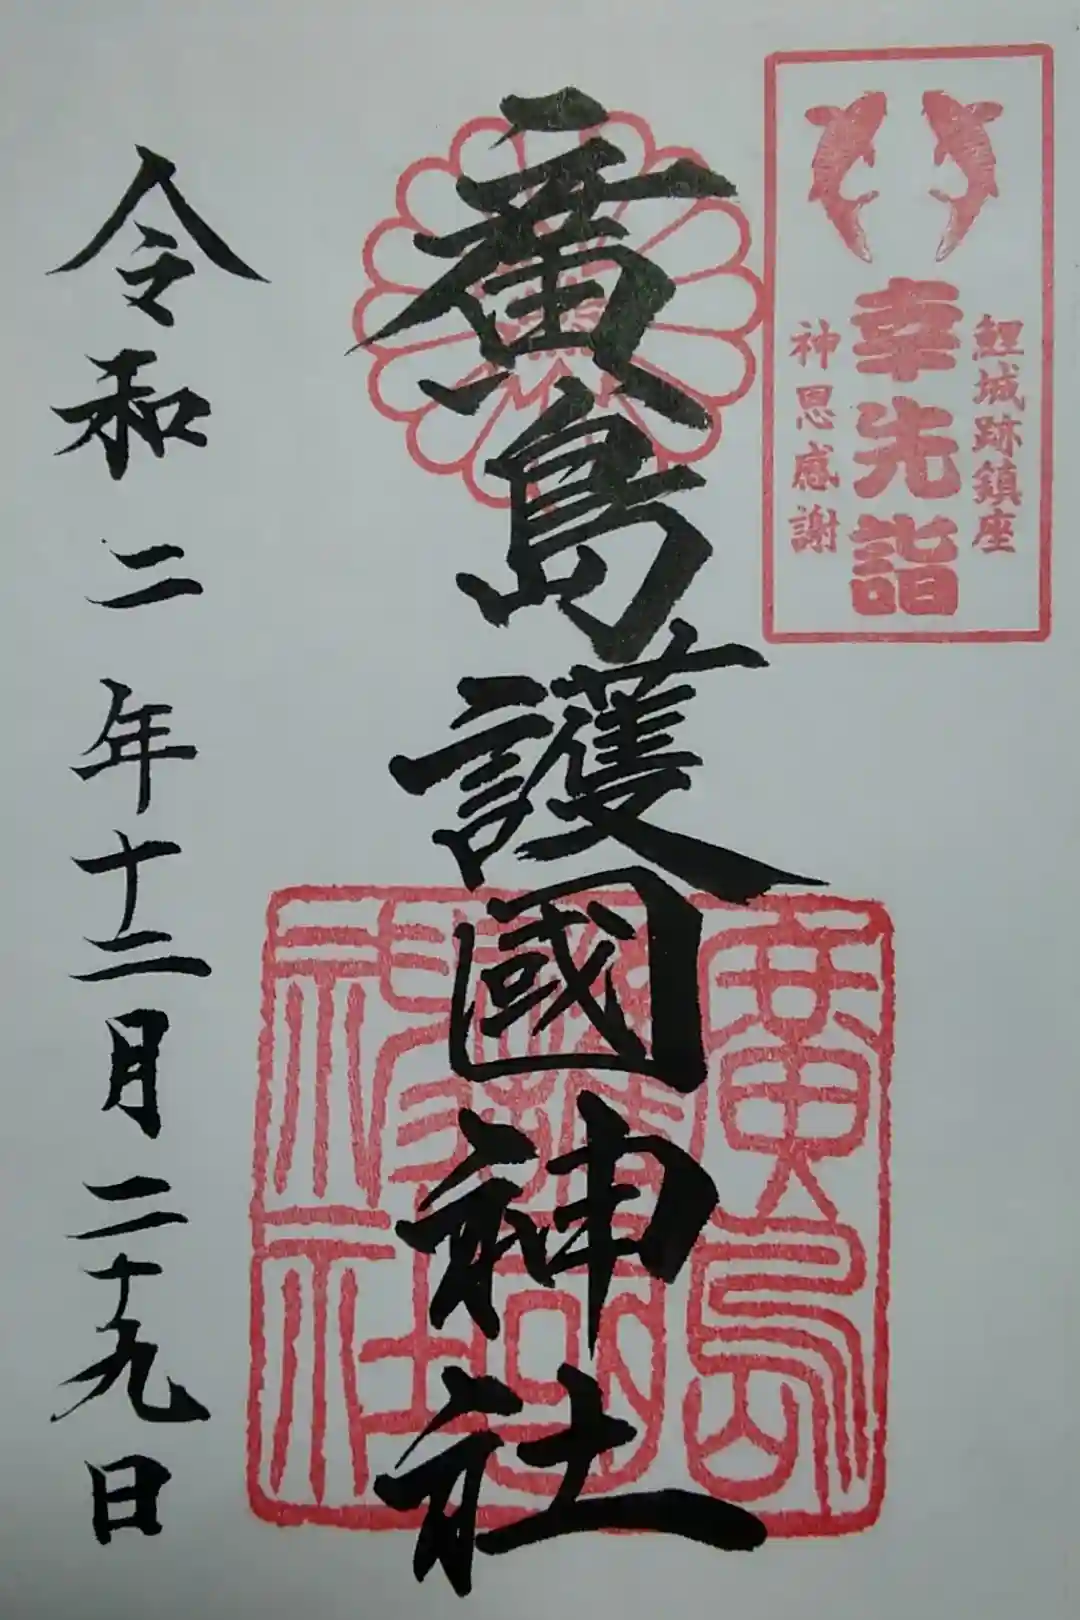 鯉城跡鎮座
幸先詣
神恩感謝
廣島護國神社
廣島
護國
神社
令和二年十二月二十九日